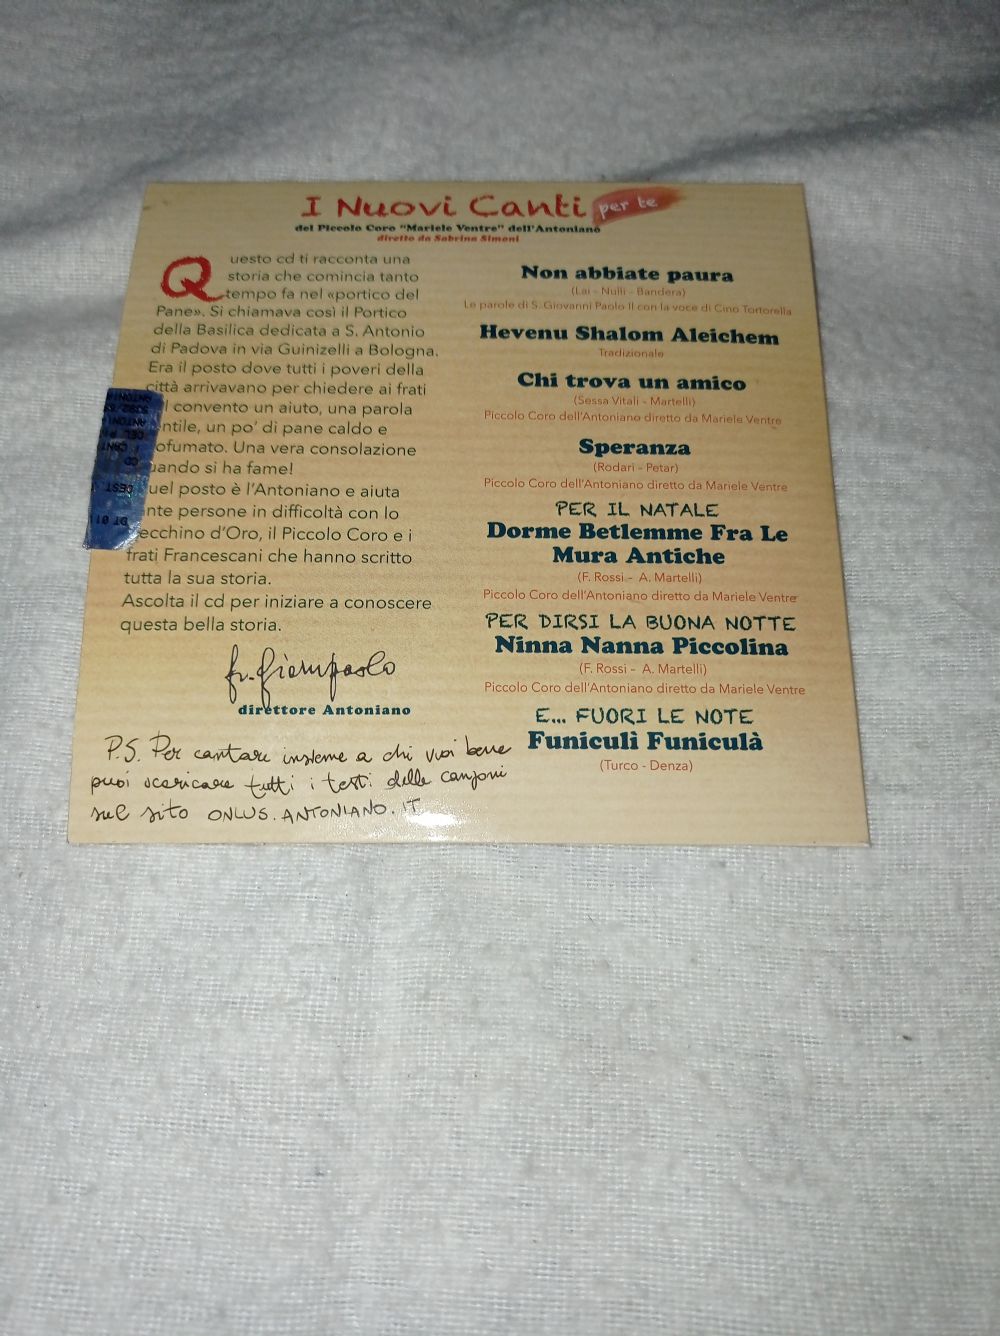 I Nuovi Canti per te
del Piccolo Coro "Mariele Ventre" dell'Antoniano
diretto da Sabrina Simoni
Questo cd ti racconta una
storia che comincia tanto
tempo fa nel «portico del
Pane». Si chiamava così il Portico
della Basilica dedicata a S. Antonio
di Padova in via Guinizelli a Bologna.
Era il posto dove tutti i poveri della
città arrivavano per chiedere ai frati
convento un aiuto, una parola
entile, un po' di pane caldo e
ofumato. Una vera consolazione
uando si ha fame!
uel posto è l'Antoniano e aiuta
nte persone in difficoltà con lo
ecchino d'Oro, il Piccolo Coro e i
frati Francescani che hanno scritto
tutta la sua storia.
Ascolta il cd per iniziare a conoscere
questa bella storia.
fr. Giampaolo
direttore Antoniano
P.S. Per cantare insieme a chi vuoi bene
puoi scaricare tutti i testi delle canzoni
sul sito ONLUS.ANTONIANO.IT
Non abbiate paura
(Lai - Nulli - Bandera)
Le parole di S. Giovanni Paolo II con la voce di Cino Tortorella
Hevenu Shalom Aleichem
Tradizionale
Chi trova un amico
(Sessa Vitali - Martelli)
Piccolo Coro dell'Antoniano diretto da Mariele Ventre
Speranza
(Rodari - Petar)
Piccolo Coro dell'Antoniano diretto da Mariele Ventre
PER IL NATALE
Dorme Betlemme Fra Le
Mura Antiche
(F. Rossi - A. Martelli)
Piccolo Coro dell'Antoniano diretto da Mariele Ventre
PER DIRSI LA BUONA NOTTE
Ninna Nanna Piccolina
(F. Rossi - A. Martelli)
Piccolo Coro dell'Antoniano diretto da Mariele Ventre
E... FUORI LE NOTE
Funiculì Funiculà
(Turco - Denza)